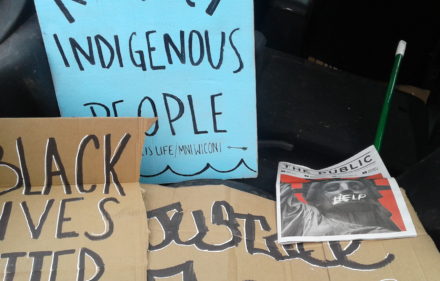 INDIGENOUS
PEOPLE
IS LIFE/MNI WICONI
BLACK
IVES
TTER
JUSTICE
THE PUBLIC
HELP